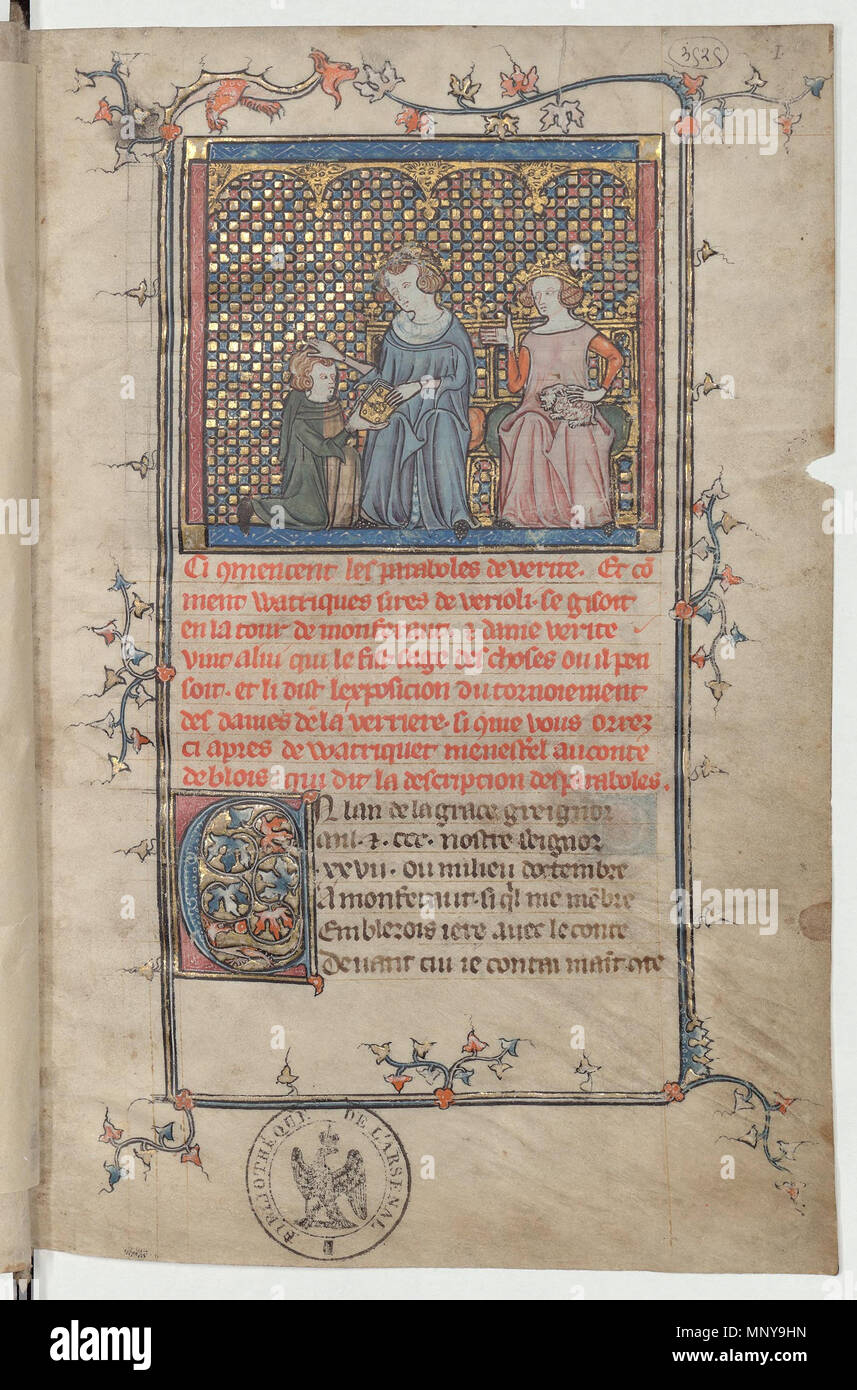 3525
1
Ci ꝯmencent les paraboles de verite. Et cō
ment watriques sires de verioli. se gisoit
en la tour de monferaut. ⁊ dame verite
vint a lui qui le fist sage des choses ou il pen
soit. et li dist lexposicion du tornoiement
des dames de la verriere. si ꝯme vous orrez
ci apres de watriquet menestrel au conte
de blois qui dit la description des paraboles.
EN lan de la grace greignor
mil. ⁊. ccc. nostre seignor
.xxvii. ou milieu doctembre
A monferaut. si qͥl me mēbre
En blerois iere avec le conte
Devant cui ie contai maint conte
BIBLIOTHÈQUE DE L'ARSENAL
alamy
Image ID: MNY9HN
www.alamy.com